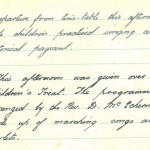 departure from time-table this afternoon
children practised singing
torical pageant.
This afternoon was given over
ildren's Treat. The programme
anged by the Rev. D.
up of marching songs